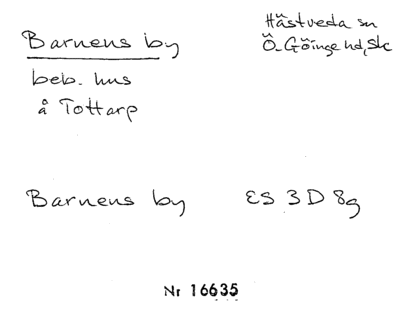 Barnens by
Hästveda sn
Ö. Göinge hd, Sk
beb. hus
å Tottarp
Barnens by ES 3D 8g
Nr 16635